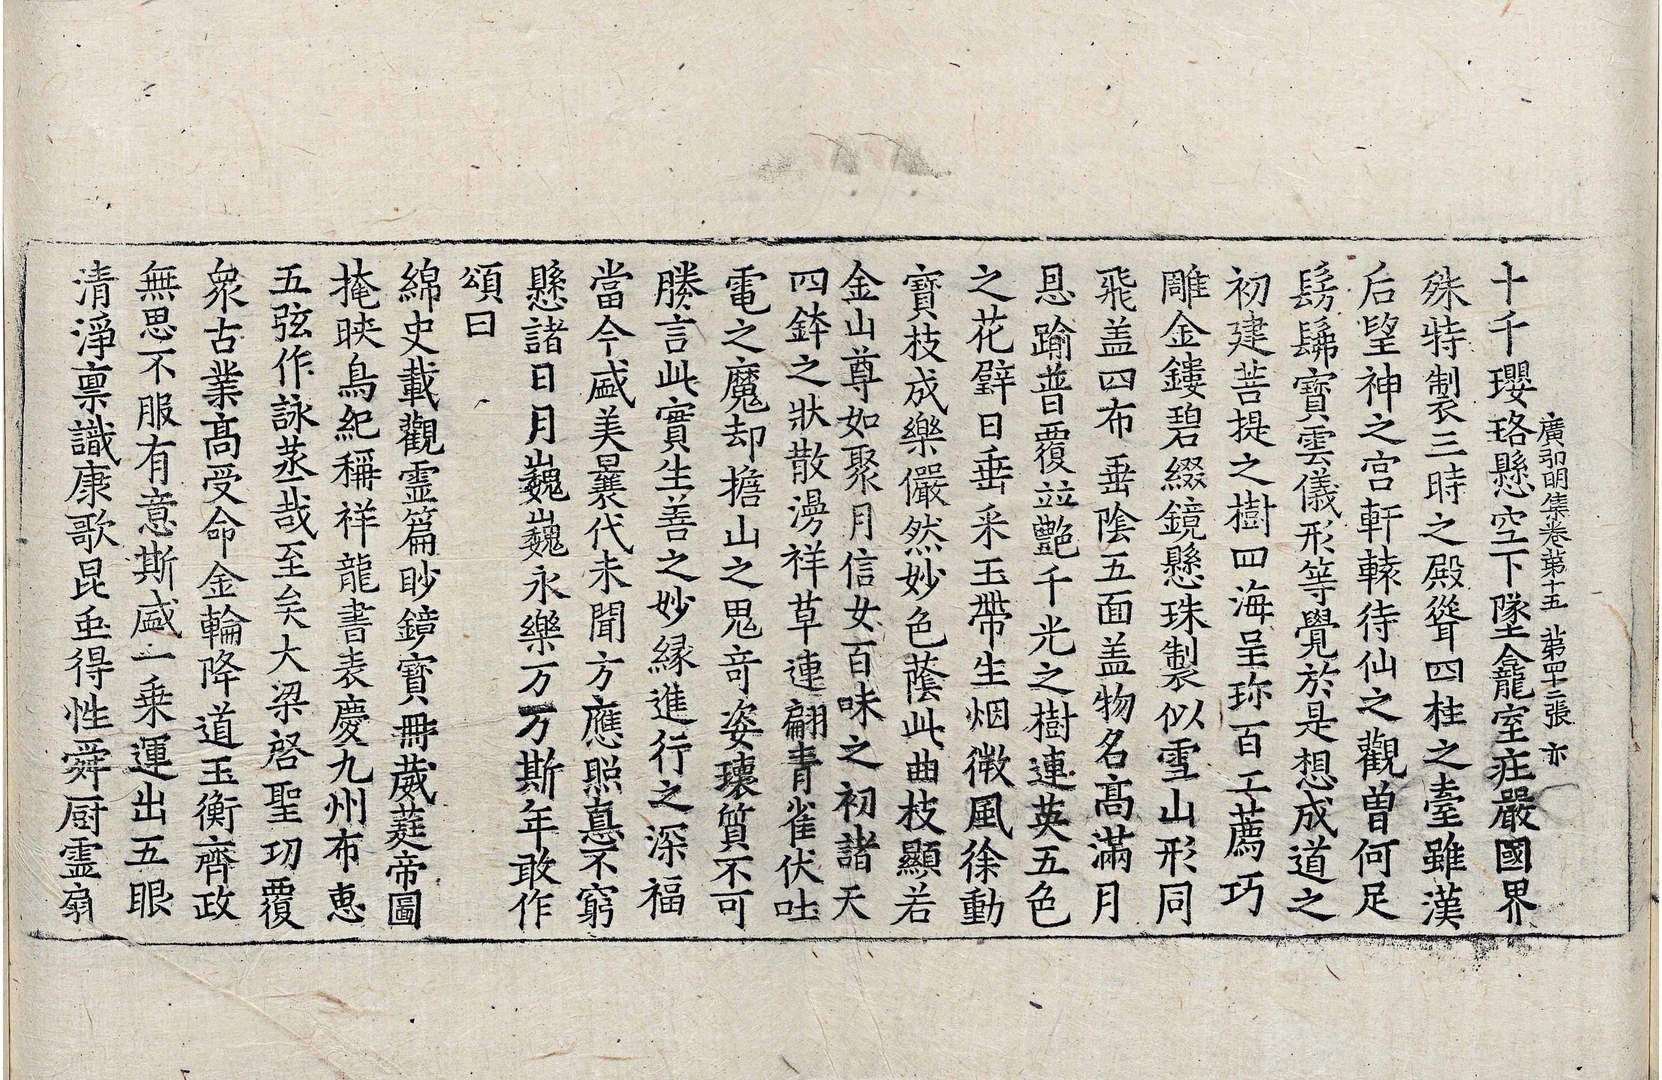 十千瓔珞懸空下墜龕室莊嚴國界
廣弘明集卷第十五 第四十二張 亦
殊特製三時之殿聳四柱之臺雖漢
后望神之宮軒轅待仙之觀曾何足
髣髴寶雲儀形等覺於是想成道之
初建菩提之樹四海呈珎百工薦巧
雕金鏤碧綴鏡懸珠製似雪山形同
飛盖四布垂陰五面盖物名高滿月
恩踰普覆竝艶千光之樹連英五色
之花璧日垂采玉帶生烟微風徐動
寶枝成樂儼然妙色蔭此曲枝顯若
金山尊如聚月信女百味之初諸天
四鉢之狀散漫祥草連翩青雀伏吐
電之魔却擔山之鬼竒姿瓌質不可
勝言此實生善之妙緣進行之深福
當今盛美曩代未聞方應照憙不窮
懸諸日月巍巍永樂万万斯年敢作
頌曰
綿史載觀靈篇眇鏡寶冊葳蕤帝圖
掩映鳥紀稱祥龍書表慶九州布惠
五弦作詠蒸哉至矣大梁啓聖功覆
衆古業高受命金輪降道玉衡齊政
無思不服有意斯盛一乗運出五眼
清淨禀識康歌昆虫得性舜厨靈扇